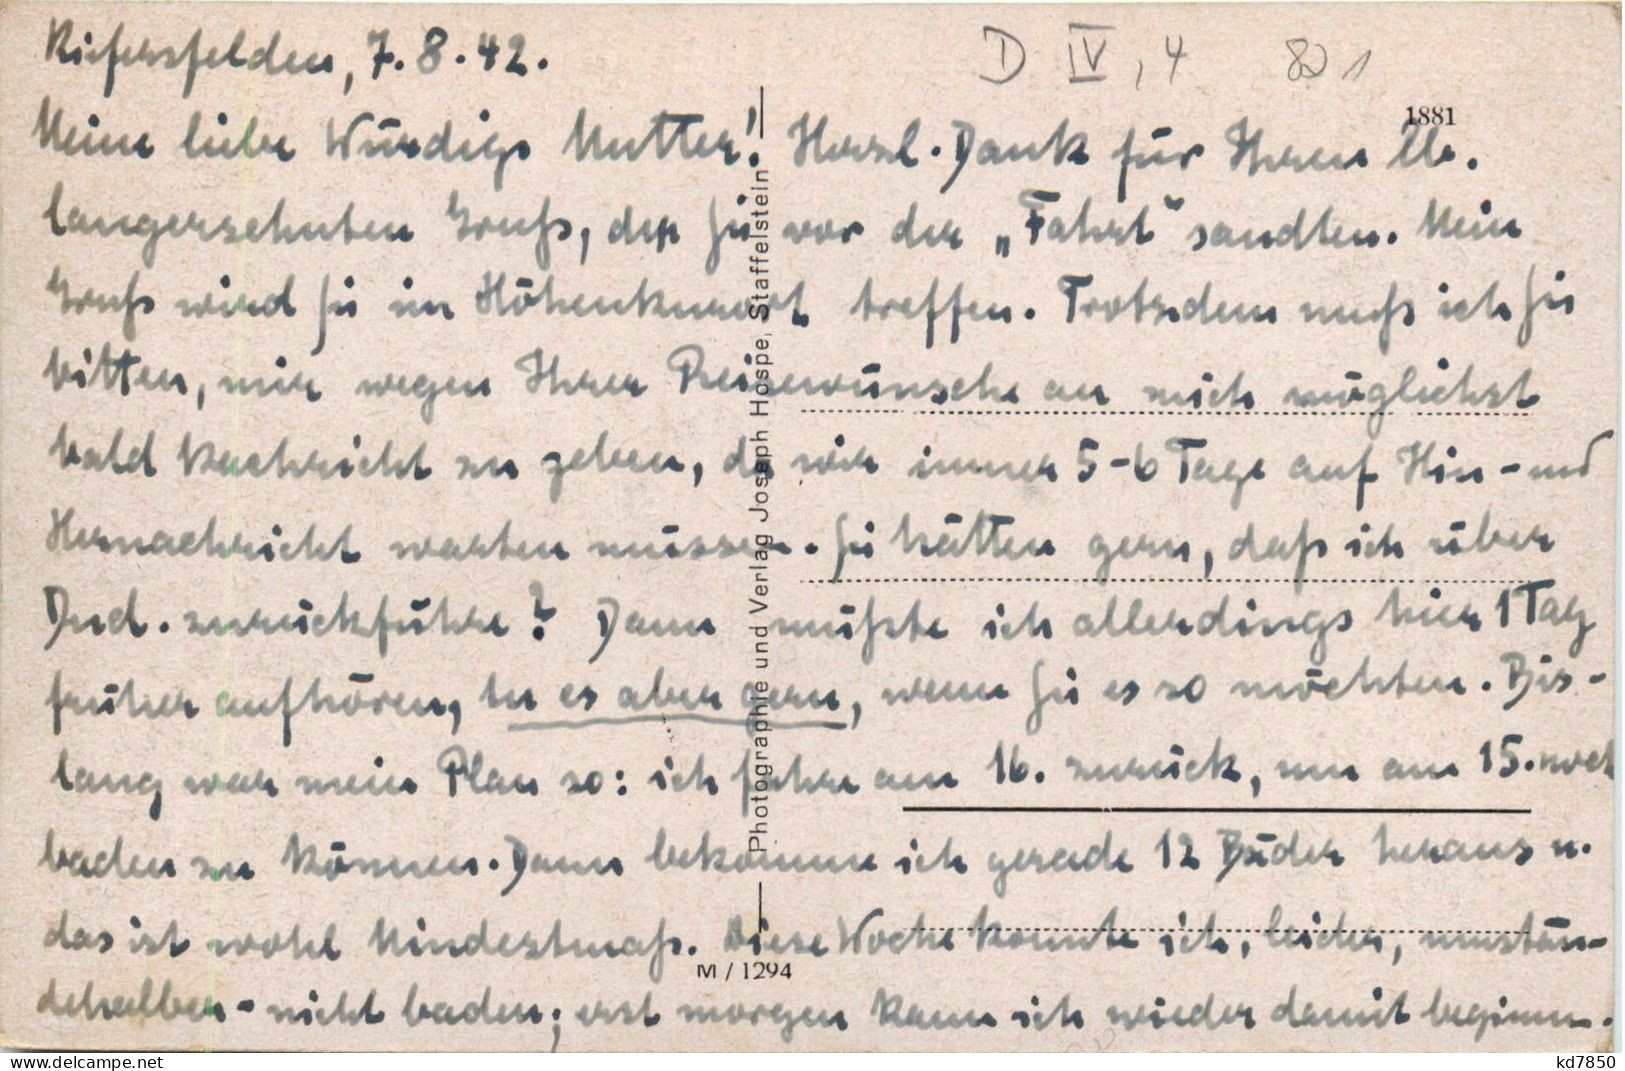 Kiefersfelden, 7.8.42.
D IV, 4
1881
Meine liebe Würdige Mutter! Herzl. Dank für Ihren lb.
langersehnten Gruß, den Sie vor der „Fahrt“ sandten. Mein
Gruß wird Sie im Höhenkurort treffen. Trotzdem muß ich Sie
bitten, mir wegen Ihrer Reisewünsche an mich möglichst
bald Nachricht zu geben, da wir immer 5-6 Tage auf Hin- und
Hernachricht warten müssen. Sie hätten gern, daß ich über
Dud. zurückführe? Dann müßte ich allerdings hier 1 Tag
früher aufhören, tu es aber gern, wenn Sie es so möchten. Bis-
lang war mein Plan so: ich fahre am 16. zurück, um am 15. noch
baden zu können. Dann bekomme ich gerade 12 Bäder heraus u.
das ist wohl Mindestmaß. Diese Woche konnte ich, leider, umstän-
dehalber - nicht baden; erst morgen kann ich wieder damit beginnen.
Photographie und Verlag Joseph Hospe, Staffelstein
M / 1294
delcampe.net
kd7850